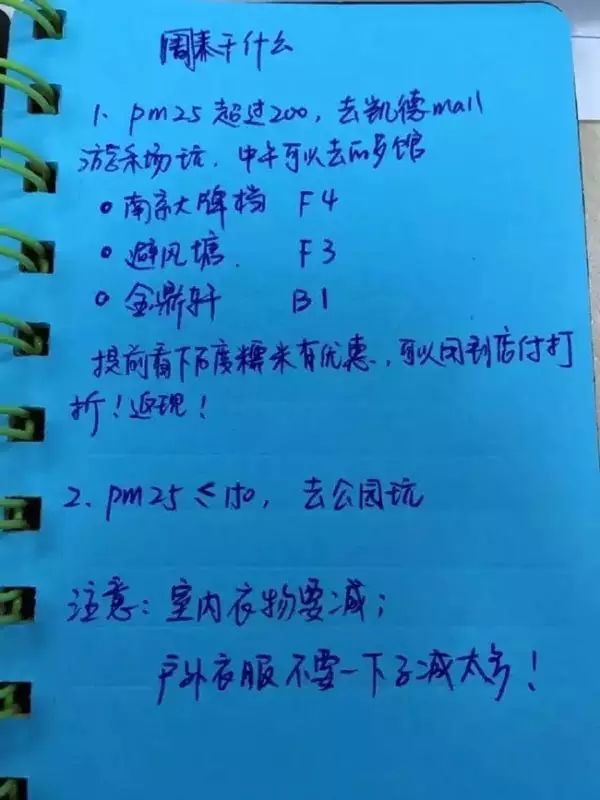 周末干什么
1、pm25 超过200，去凯德mall
游乐场玩，中午可以去的餐馆
• 南京大牌档 F4
• 避风塘 F3
• 金鼎轩 B1
提前看下百度糯米有优惠，可以用到店付打
折！返现！
2、pm25 ≤150，去公园玩
注意：室内衣物要减；
户外衣服不要一下子减太多！